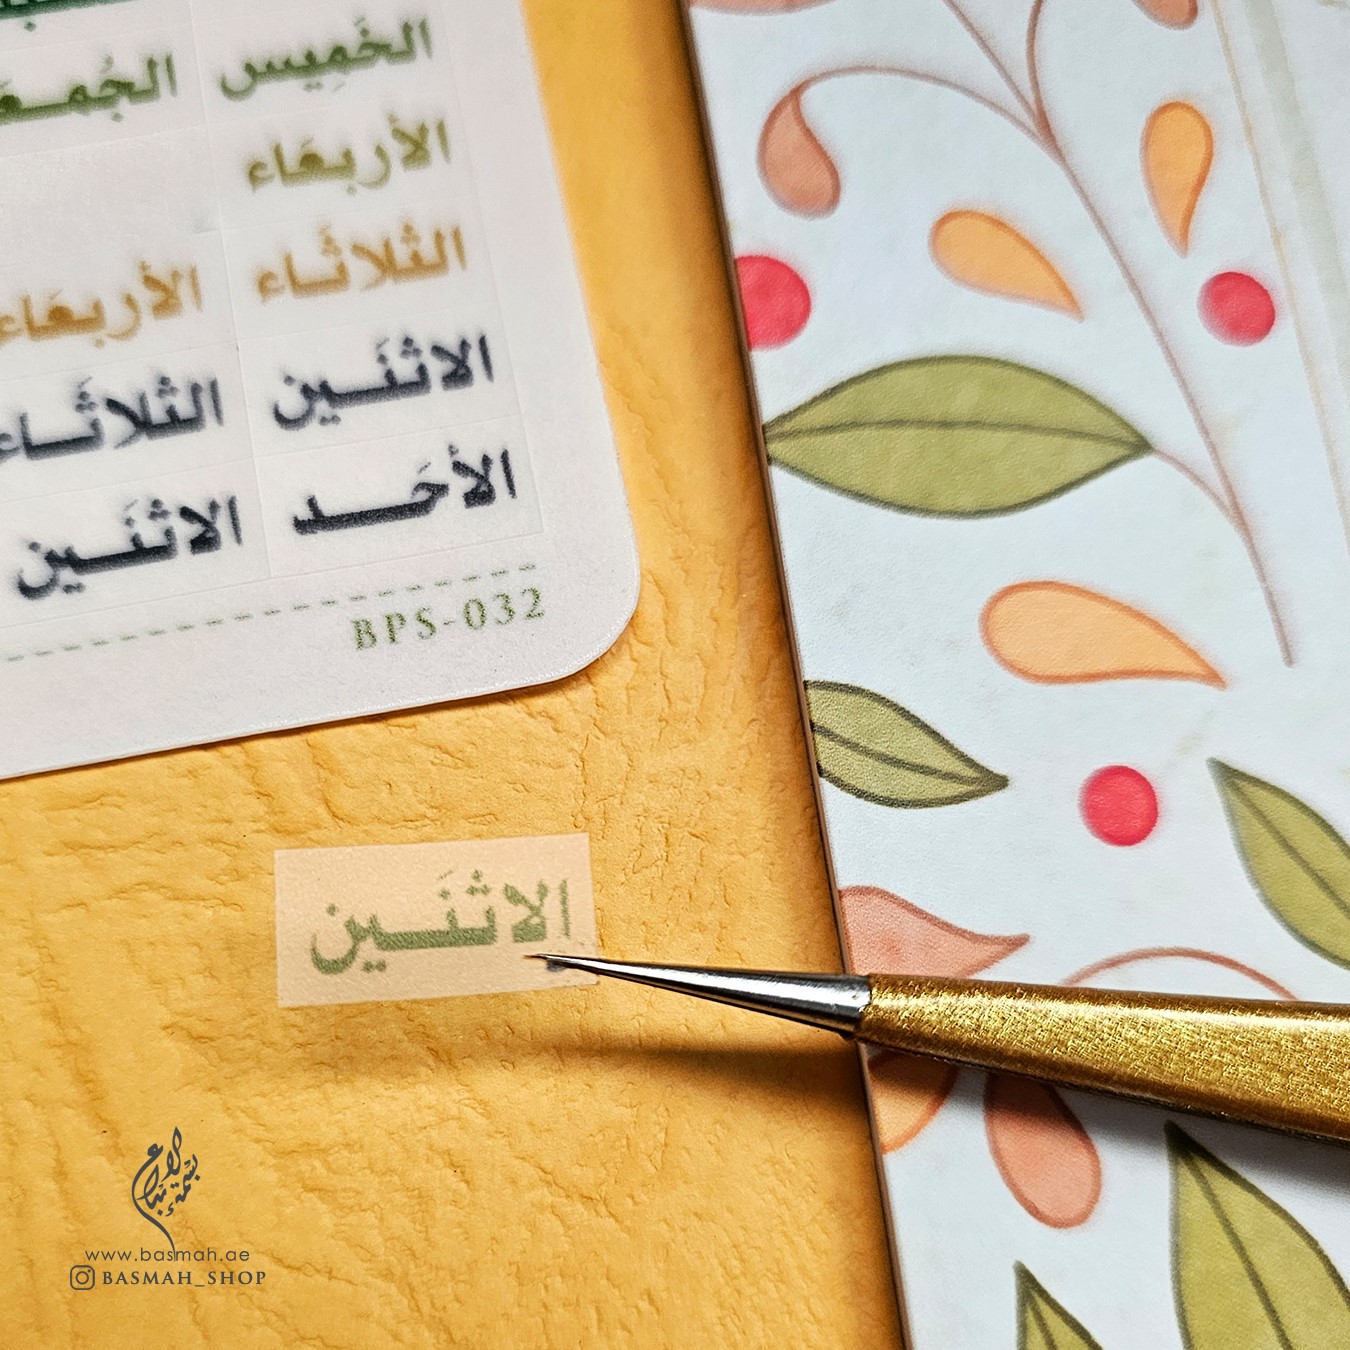 الخَمِيس الجُمـعَـة
الأربعَاء
الثّلاثَـاء الأربعَاء
الاثنَـين الثّلاثَـاء
الأحَـــد الاثنَـين
BPS-032
الاثنَـين
بسمة الابداع
www.basmah.ae
BASMAH_SHOP